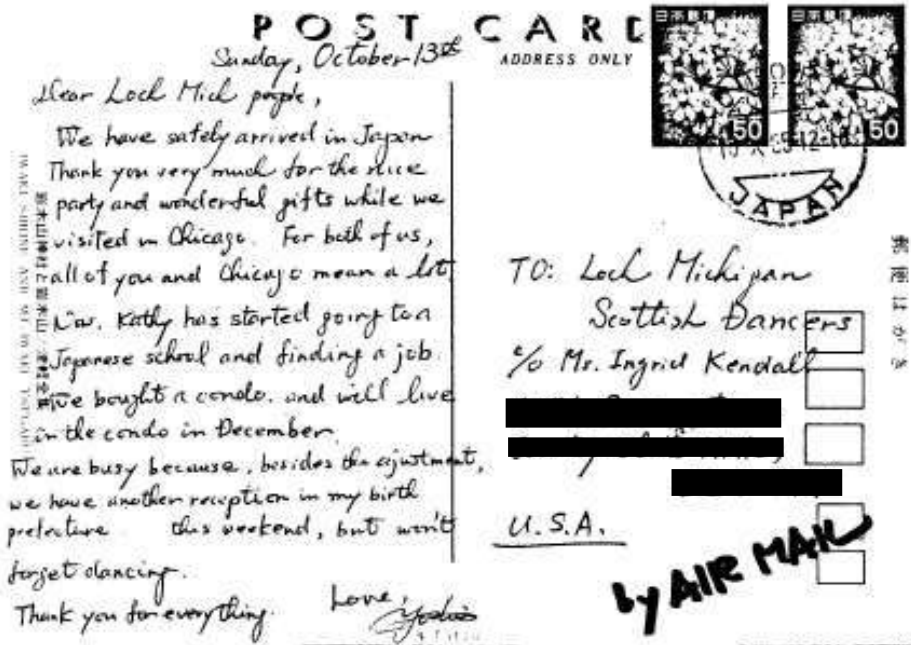 POST CARD
ADDRESS ONLY
Sunday, October 13th
Dear Loch Mich people,
We have safely arrived in Japan
Thank you very much for the nice
party and wonderful gifts while we
visited in Chicago. For both of us,
all of you and Chicago mean a lot.
Now, Kathy has started going to a
Japanese school and finding a job.
We bought a condo. and will live
in the condo in December.
We are busy because, besides the ajustment,
we have another reception in my birth
prefecture this weekend, but won't
forget dancing.
Thank you for everything.
Love,
50
50
JAPAN
TO: Loch Michigan
Scottish Dancers
c/o Ms. Ingrid Kendall
U.S.A.
by AIR MAIL
郵便はがき